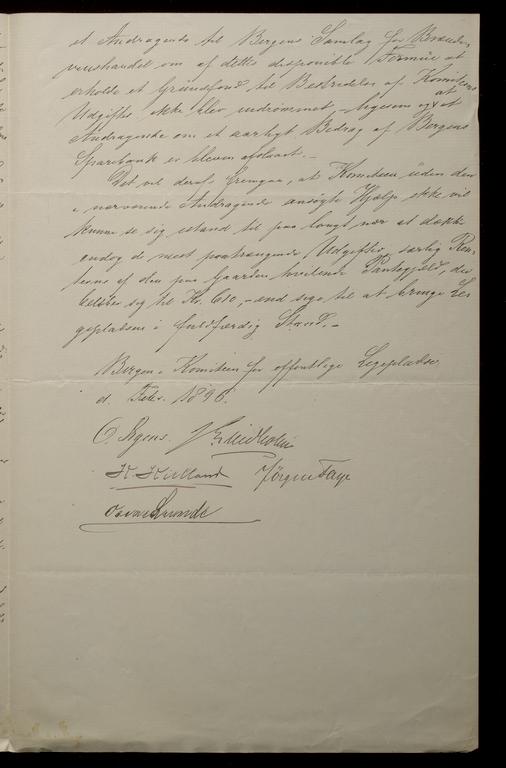 et Andragende til Bergens Samlag for Brænde-
vinshandel om af dettes disponible Formue at
erholde et Grundfond til Bestridelse af Komiteens
Udgifter ikke blev indrømmet, ligesom og at et
Andragende om et aarligt Bidrag af Bergens
Sparebank er bleven afslaaet.
Det vil deraf fremgaa, at Komiteen uden den
i nærværende Andragende ansøgte Hjælp ikke vil
kunne se sig istand til paa langt nær at dække
endog de mest paatrængende Udgifter, særlig Ren-
terne af den paa Gaarden hvilende Pantegjeld, der
beløber sig til Kr. 610, - end sige til at bringe Le-
gepladsen i fuldfærdig Stand. -
Bergens Komite for offentlige Legepladse
d. Febr. 1896.
K. Kielland Jørgen Faye
Lunde